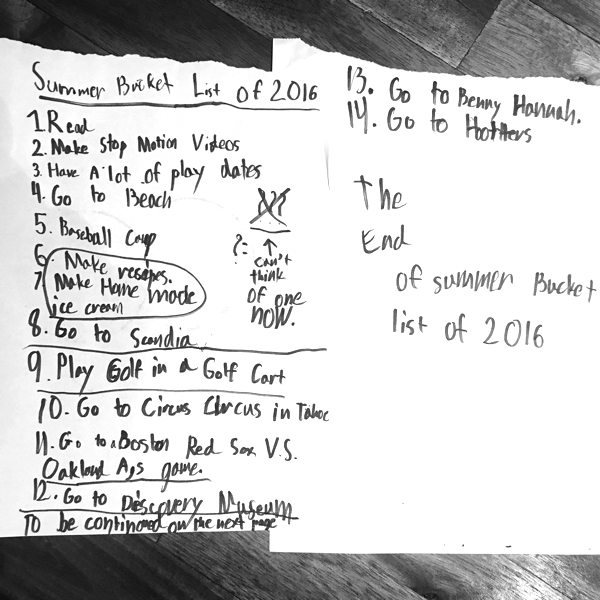 Summer Bucket List of 2016
1 Read
2. Make Stop Motion Videos
3. Have A lot of play dates
4. Go to Beach
5. Baseball Camp
6. Make resipes.
7. Make Home mode
ice cream
8. Go to Scandia
9. Play Golf in a Golf Cart
10. Go to Circus Circus in Tahoe
11. Go to a Boston Red Sox V.S.
Oakland A,s game.
12. Go to Discovery Museum
To be continored on the next page
?= ↑
can't
think
of one
now.
13. Go to Benny Hannah.
14. Go to Hootters
The
End
of summer Bucket
list of 2016